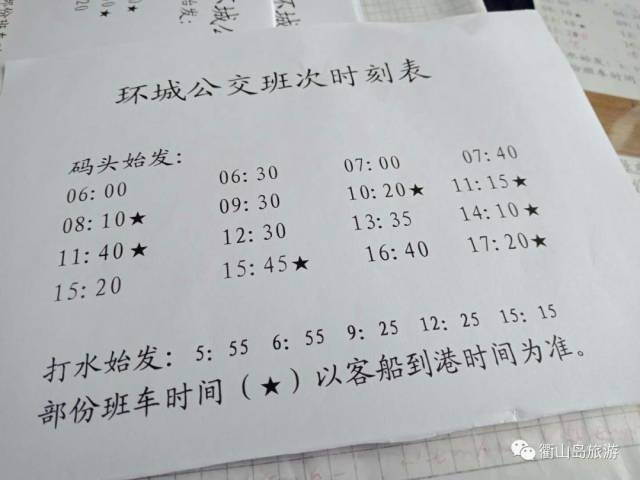 环城公交班次时刻表
码头始发：
06：00 06：30 07：00 07：40
08：10★ 09：30 10：20★ 11：15★
11：40★ 12：30 13：35 14：10★
15：20 15：45★ 16：40 17：20★
打水始发：5：55 6：55 9：25 12：25 15：15
部份班车时间（★）以客船到港时间为准。
衢山岛旅游